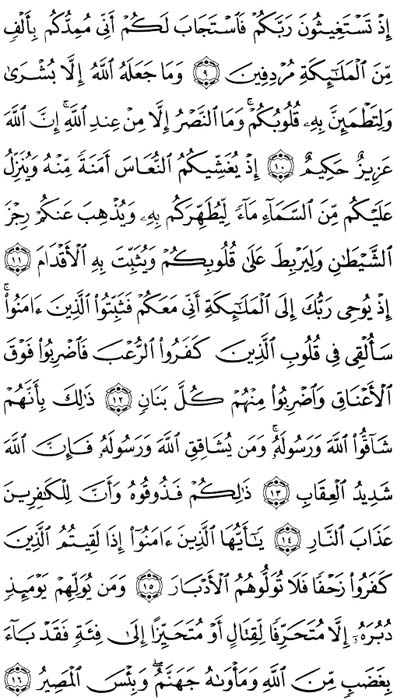 إِذْ تَسْتَغِيثُونَ رَبَّكُمْ فَٱسْتَجَابَ لَكُمْ أَنِّى مُمِدُّكُم بِأَلْفٍ
مِّنَ ٱلْمَلَٰٓئِكَةِ مُرْدِفِينَ ٩ وَمَا جَعَلَهُ ٱللَّهُ إِلَّا بُشْرَىٰ
وَلِتَطْمَئِنَّ بِهِۦ قُلُوبُكُمْ ۚ وَمَا ٱلنَّصْرُ إِلَّا مِنْ عِندِ ٱللَّهِ ۚ إِنَّ ٱللَّهَ
عَزِيزٌ حَكِيمٌ ١٠ إِذْ يُغَشِّيكُمُ ٱلنُّعَاسَ أَمَنَةً مِّنْهُ وَيُنَزِّلُ
عَلَيْكُم مِّنَ ٱلسَّمَآءِ مَآءً لِّيُطَهِّرَكُم بِهِۦ وَيُذْهِبَ عَنكُمْ رِجْزَ
ٱلشَّيْطَٰنِ وَلِيَرْبِطَ عَلَىٰ قُلُوبِكُمْ وَيُثَبِّتَ بِهِ ٱلْأَقْدَامَ ١١
إِذْ يُوحِى رَبُّكَ إِلَى ٱلْمَلَٰٓئِكَةِ أَنِّى مَعَكُمْ فَثَبِّتُوا۟ ٱلَّذِينَ ءَامَنُوا۟ ۚ
سَأُلْقِى فِى قُلُوبِ ٱلَّذِينَ كَفَرُوا۟ ٱلرُّعْبَ فَٱضْرِبُوا۟ فَوْقَ
ٱلْأَعْنَاقِ وَٱضْرِبُوا۟ مِنْهُمْ كُلَّ بَنَانٍ ١٢ ذَٰلِكَ بِأَنَّهُمْ
شَآقُّوا۟ ٱللَّهَ وَرَسُولَهُۥ ۚ وَمَن يُشَاقِقِ ٱللَّهَ وَرَسُولَهُۥ فَإِنَّ ٱللَّهَ
شَدِيدُ ٱلْعِقَابِ ١٣ ذَٰلِكُمْ فَذُوقُوهُ وَأَنَّ لِلْكَٰفِرِينَ
عَذَابَ ٱلنَّارِ ١٤ يَٰٓأَيُّهَا ٱلَّذِينَ ءَامَنُوٓا۟ إِذَا لَقِيتُمُ ٱلَّذِينَ
كَفَرُوا۟ زَحْفًا فَلَا تُوَلُّوهُمُ ٱلْأَدْبَارَ ١٥ وَمَن يُوَلِّهِمْ يَوْمَئِذٍ
دُبُرَهُۥٓ إِلَّا مُتَحَرِّفًا لِّقِتَالٍ أَوْ مُتَحَيِّزًا إِلَىٰ فِئَةٍ فَقَدْ بَآءَ
بِغَضَبٍ مِّنَ ٱللَّهِ وَمَأْوَىٰهُ جَهَنَّمُ ۖ وَبِئْسَ ٱلْمَصِيرُ ١٦